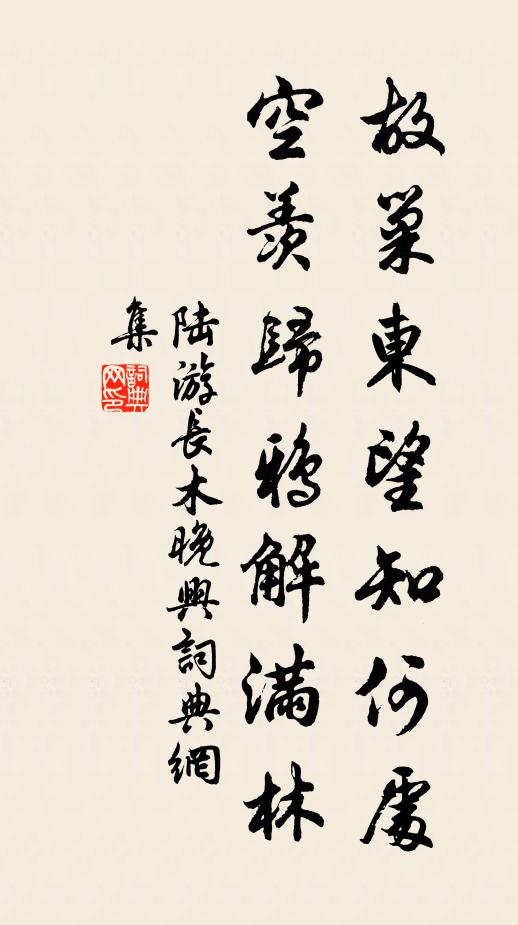 故巢東望知何處
空羨歸鴉解满林
陸游長木晚興詞典網
集
詞典网印